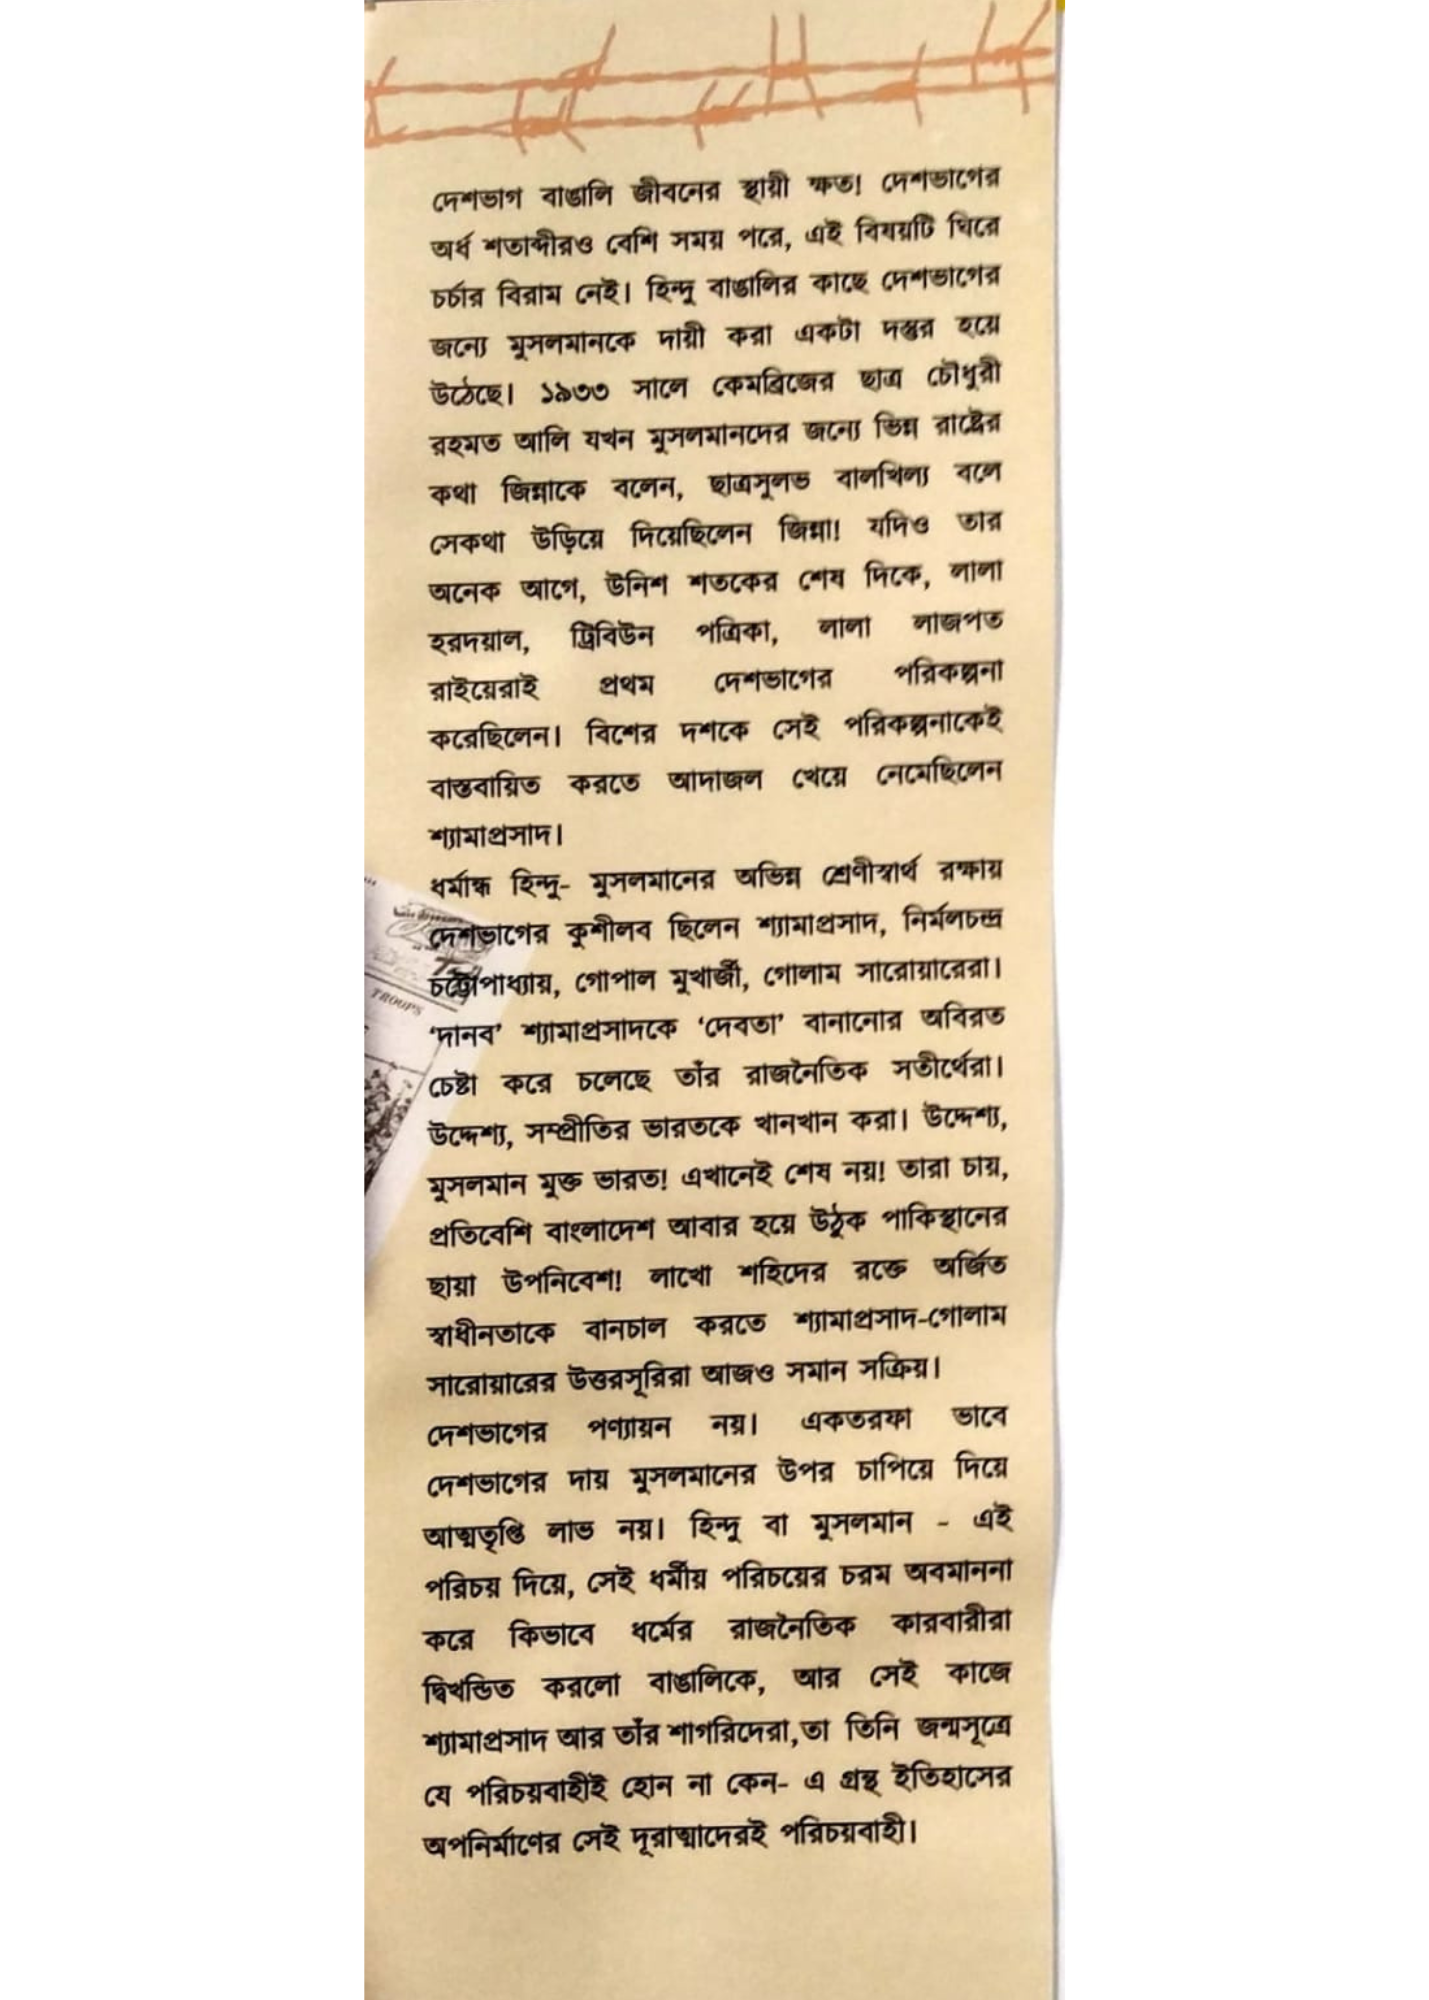 দেশভাগ বাঙালি জীবনের স্থায়ী ক্ষত! দেশভাগের
অর্ধ শতাব্দীরও বেশি সময় পরে, এই বিষয়টি ঘিরে
চর্চার বিরাম নেই। হিন্দু বাঙালির কাছে দেশভাগের
জন্যে মুসলমানকে দায়ী করা একটা দস্তুর হয়ে
উঠেছে। ১৯৩৩ সালে কেমব্রিজের ছাত্র চৌধুরী
রহমত আলি যখন মুসলমানদের জন্যে ভিন্ন রাষ্ট্রের
কথা জিন্নাকে বলেন, ছাত্রসুলভ বালখিল্য বলে
সেকথা উড়িয়ে দিয়েছিলেন জিন্না! যদিও তার
অনেক আগে, উনিশ শতকের শেষ দিকে, লালা
হরদয়াল, ট্রিবিউন পত্রিকা, লালা লাজপত
রাইয়েরাই প্রথম দেশভাগের পরিকল্পনা
করেছিলেন। বিশের দশকে সেই পরিকল্পনাকেই
বাস্তবায়িত করতে আদাজল খেয়ে নেমেছিলেন
শ্যামাপ্রসাদ।
ধর্মান্ধ হিন্দু- মুসলমানের অভিন্ন শ্রেণীস্বার্থ রক্ষায়
দেশভাগের কুশীলব ছিলেন শ্যামাপ্রসাদ, নির্মলচন্দ্র
চট্টোপাধ্যায়, গোপাল মুখার্জী, গোলাম সারোয়ারেরা।
TROOPS
‘দানব’ শ্যামাপ্রসাদকে ‘দেবতা’ বানানোর অবিরত
চেষ্টা করে চলেছে তাঁর রাজনৈতিক সতীর্থেরা।
উদ্দেশ্য, সম্প্রীতির ভারতকে খানখান করা। উদ্দেশ্য,
মুসলমান মুক্ত ভারত! এখানেই শেষ নয়! তারা চায়,
প্রতিবেশি বাংলাদেশ আবার হয়ে উঠুক পাকিস্থানের
ছায়া উপনিবেশ! লাখো শহিদের রক্তে অর্জিত
স্বাধীনতাকে বানচাল করতে শ্যামাপ্রসাদ-গোলাম
সারোয়ারের উত্তরসূরিরা আজও সমান সক্রিয়।
দেশভাগের পণ্যায়ন নয়। একতরফা ভাবে
দেশভাগের দায় মুসলমানের উপর চাপিয়ে দিয়ে
আত্মতৃপ্তি লাভ নয়। হিন্দু বা মুসলমান - এই
পরিচয় দিয়ে, সেই ধর্মীয় পরিচয়ের চরম অবমাননা
করে কিভাবে ধর্মের রাজনৈতিক কারবারীরা
দ্বিখন্ডিত করলো বাঙালিকে, আর সেই কাজে
শ্যামাপ্রসাদ আর তাঁর শাগরিদেরা,তা তিনি জন্মসূত্রে
যে পরিচয়বাহীই হোন না কেন- এ গ্রন্থ ইতিহাসের
অপনির্মাণের সেই দূরাত্মাদেরই পরিচয়বাহী।